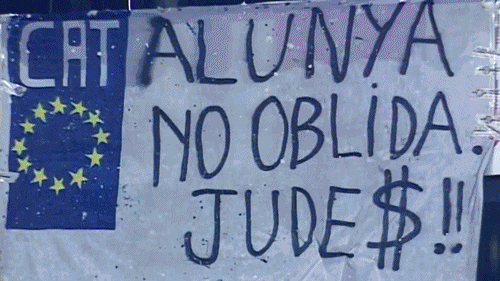 CATALUNYA
NO OBLIDA.
JUDE$!!